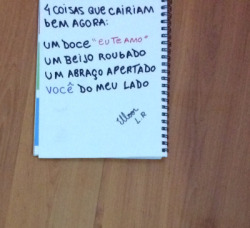 4 COISAS QUE CAIRIAM
BEM AGORA:
UM DOCE "EU TE AMO"
UM BEIJO ROUBADO
UM ABRAÇO APERTADO
VOCÊ DO MEU LADO
L.R